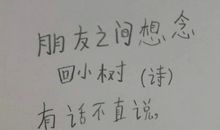 朋友之间想念
回小树（诗）
有话不直说。